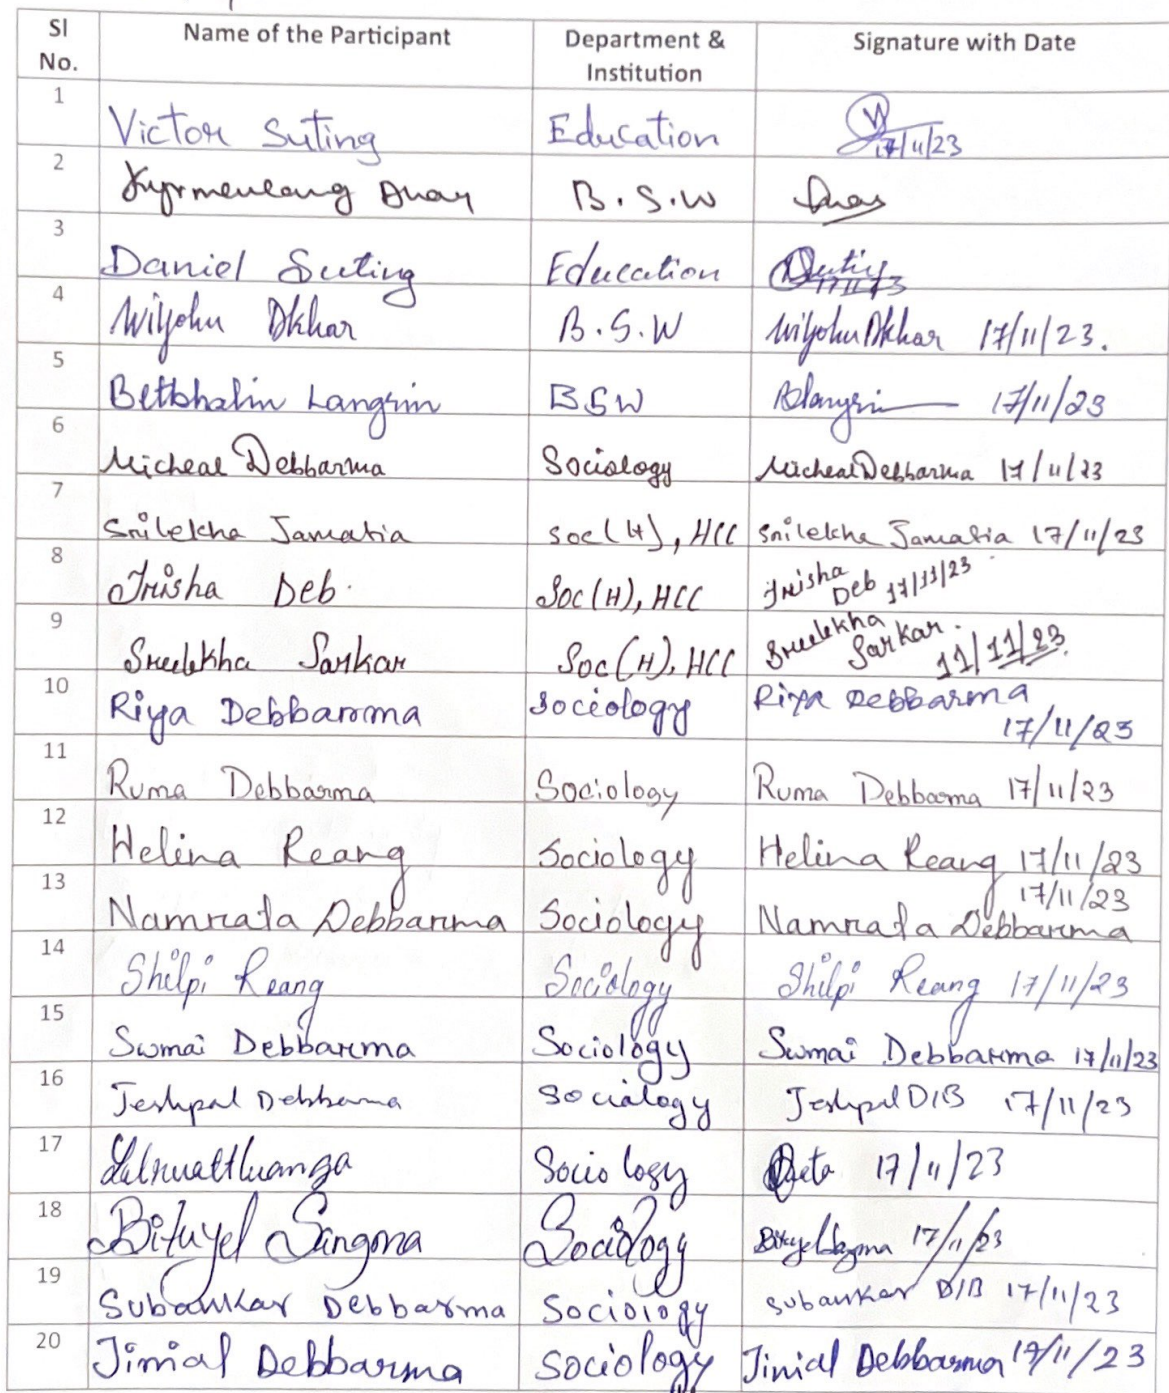 Sl No. Name of the Participant Department & Institution Signature with Date
1 Victor Suting Education 17/11/23
2 B.S.W
3 Daniel Suting Education Suting 17/11/23
4 Wilyohn Dkhar B.S.W Wilyohn Dkhar 17/11/23.
5 Betbhalin Langrin BSW Blangrin 17/11/23
6 Micheal Debbarma Sociology Micheal Debbarma 17/11/23
7 Srilekha Jamatia Soc(H), HCC Srilekha Jamatia 17/11/23
8 Trisha Deb. Soc(H), HCC Trisha Deb 17/11/23
9 Sreelekha Sarkar Soc(H), HCC Sreelekha Sarkar. 11/11/23.
10 Riya Debbarma Sociology Riya Debbarma 17/11/23
11 Ruma Debbarma Sociology Ruma Debbarma 17/11/23
12 Helina Reang Sociology Helina Reang 17/11/23
13 Namrata Debbarma Sociology Namrata Debbarma 17/11/23
14 Shilpi Reang Sociology Shilpi Reang 17/11/23
15 Sumai Debbarma Sociology Sumai Debbarma 17/11/23
16 Jeshpal Debbarma Sociology Jeshpal D/B 17/11/23
17 Lalruattluanga Sociology 17/11/23
18 Bituyel Sangma Sociology Bituyel Sangma 17/11/23
19 Subankar Debbarma Sociology Subankar D/B 17/11/23
20 Jimial Debbarma Sociology Jinial Debbarma 17/11/23